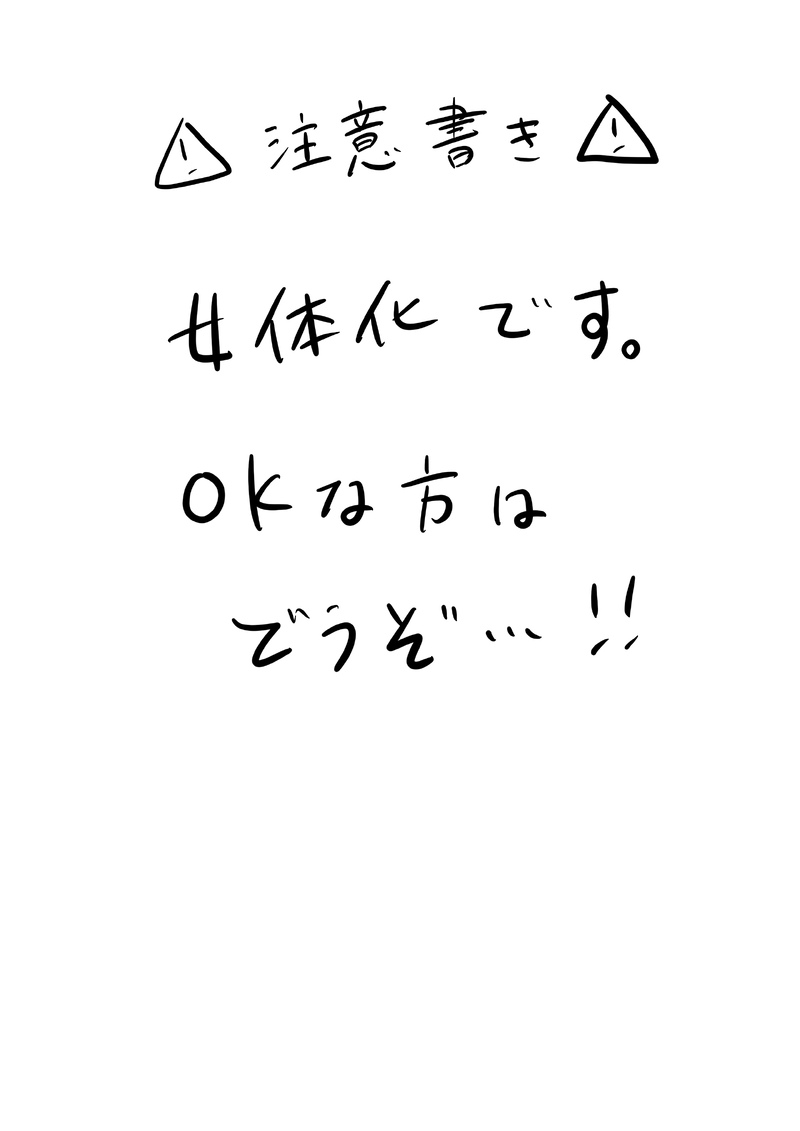 ⚠ 注意書き ⚠
女体化です。
OKな方は
どうぞ…!!